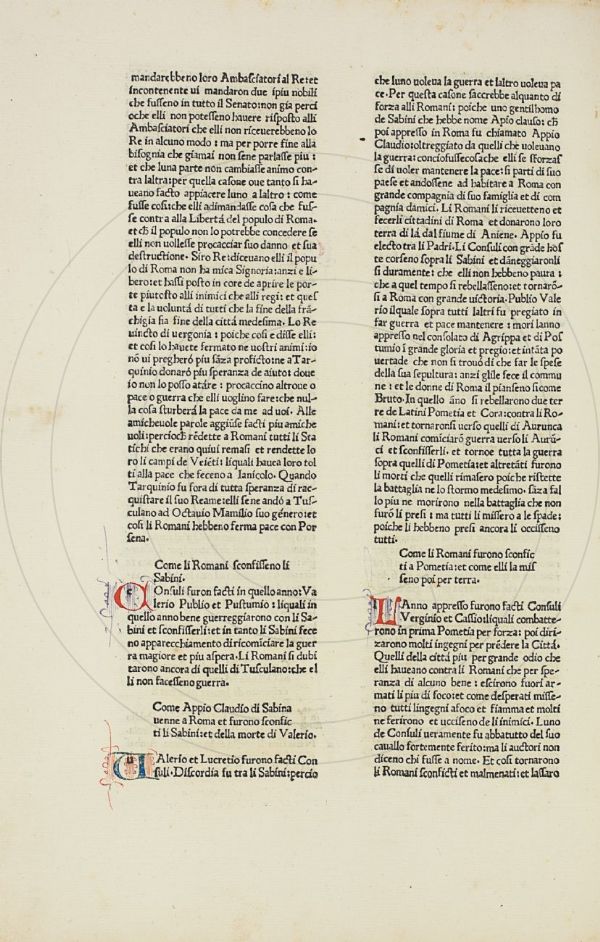 mandarebbeno loro Ambasciatori al Re: et
incontenente ui mandaron due ipiu nobili
che fusseno in tutto il Senato: non gia perci
oche elli non potesseno hauere risposto alli
Ambasciatori che elli non riceuerebbeno lo
Re in alcuno modo: ma per porre fine alla
bisognia che giamai non sene parlasse piu:
et che luna parte non cambiasse animo con-
tra laltra: per quella casone oue tanto si ha-
ueano facto appiacere luno a laltro: come
fusse cosi: che elli adimandasse cosa che fus-
se contra alla Libertá del populo di Roma.
et ch̃ il populo non lo potrebbe concedere se
elli non uollesse procacciar suo danno et sua
destructione. Siro Re: diceuano elli il popu
lo di Roma non ha mica Signoria: anzi e li-
bero: et hassi posto in core de aprire le por-
te piutosto alli inimici che alli regi: et ques
ta e la uoluntá di tutti che la fine della frã-
chigia sia fine della cittá medesima. Lo Re
uincto di uergonia: poiche cosi e disse elli:
et cosi lo hauete fermato ne uostri animi: io
nõ ui pregheró piu sãza profícto: ne a Tar-
quinio donaró piu speranza de aiuto: doue
io non lo posso atáre: procaccino altroue o
pace o guerra che elli uoglino fare: che nul-
la cosa sturberá la pace da me ad uoi. Alle
amicheuole parole aggiũse facti piu amiche
uoli: percioch̃ rẽdette a Romani tutti li Sta
tichi che erano quiui remasi et rendette lo
ro li campi de Veiéti: li quali hauea loro tol
ti alla pace che feceno a Ianicolo. Quando
Tarquinio fu fora di tutta speranza di rac-
quistare il suo Reame: elli sene andó a Tus-
culano ad Octauio Mamilio suo género: et
cosi li Romani hebbeno ferma pace con Por
sena.
Come li Romani sconfisseno li
Sabini.
COnsuli furon facti in quello anno: Va
lerio Publio et Pustumio: liquali in
quello anno bene guerreggiarono con li Sa-
bini et sconfisserli: et in tanto li Sabini fece
no apparecchiamento di ricomĩciare la guer
ra magiore et piu aspera. Li Romani si dubi
tarono ancora di quelli di Tusculano: che el
li non facesseno guerra.
Come Appio Claudio di Sabina
uenne a Roma et furono sconfic
ti li Sabini: et della morte di Valerio.
UAlerio et Lucretio furono facti Con
suli. Discordia fu tra li Sabini: percio
che luno uoleua la guerra et laltro uoleua pa
ce. Per questa casone saccrebbe alquanto di
forza alli Romani: poiche uno gentilhomo
de Sabini che hebbe nome Apio clauso: ch̃
poi appresso in Roma fu chiamato Appio
Claudio: oltreggiato da quelli che uoleuano
la guerra: conciofussecosache elli se sforzas
se di uoler mantenere la pace: si parti di suo
paese et andossene ad habitare a Roma con
grande compagnia di suo famiglia et di com
pagnia damici. Li Romani li riceuetteno et
fecerli cittadini di Roma et donarono loro
terra di lá dal fiume di Aniene. Appio fu
electo tra li Padri. Li Consuli con grãde hos
te corseno sopra li Sabini et dãneggiaronli
si duramente: che elli non hebbeno paura:
che a quel tempo si rebellasseno: et tornarõ-
si a Roma con grande uictoria. Publio Vale
rio ilquale sopra tutti laltri fu pregiato in
far guerra et pace mantenere: mori lanno
appresso nel consolato di Agrippa et di Pos
tumio ĩ grande gloria et pregio: et intãta po
uertade che non si trouó di che far le spese
della sua sepultura: anzi glile fece il commu
ne: et le donne di Roma il pianseno sicome
Bruto. In quello ãno si rebellarono due ter
re de Latini Pometia et Cora: contra li Ro-
mani: et tornaronsi uerso quelli di Aurunca
li Romani comiciarõ guerra uerso li Aurũ-
ci et sconfisserli. et tornoe tutta la guerra
sopra quelli di Pometia: et altretãti furono
li morti che quelli rimasero poiche ristette
la battaglia ne lo stormo medesimo. sãza fal
lo piu ne morirono nella battaglia che non
furõ li presi: ma tutti li missero a le spade:
poiche li hebbeno presi ancora li occiseno
tutti.
Come li Romani furono sconfic
ti a Pometia: et come elli la mis
seno poi per terra.
LAnno appresso furono facti Consuli
Verginio et Cassio: liquali combatte-
rono in prima Pometia per forza: poi diri-
zarono molti ingegni per prédere la Cittá.
Quelli della cittá piu per grande odio che
elli haueano contra li Romani che per spe-
ranza di alcuno bene: escirono fuori ar-
mati li piu di foco: et come desperati misse-
no tutti lingegni afoco et fiamma et molti
ne ferirono et ucciseno de li inimici. Luno
de Consuli ueramente fu abbatuto del suo
cauallo fortemente ferito: ma li auctori non
diceno chi fusse a nome. Et cosi tornarono
li Romani sconficti et malmenati: et lassaro